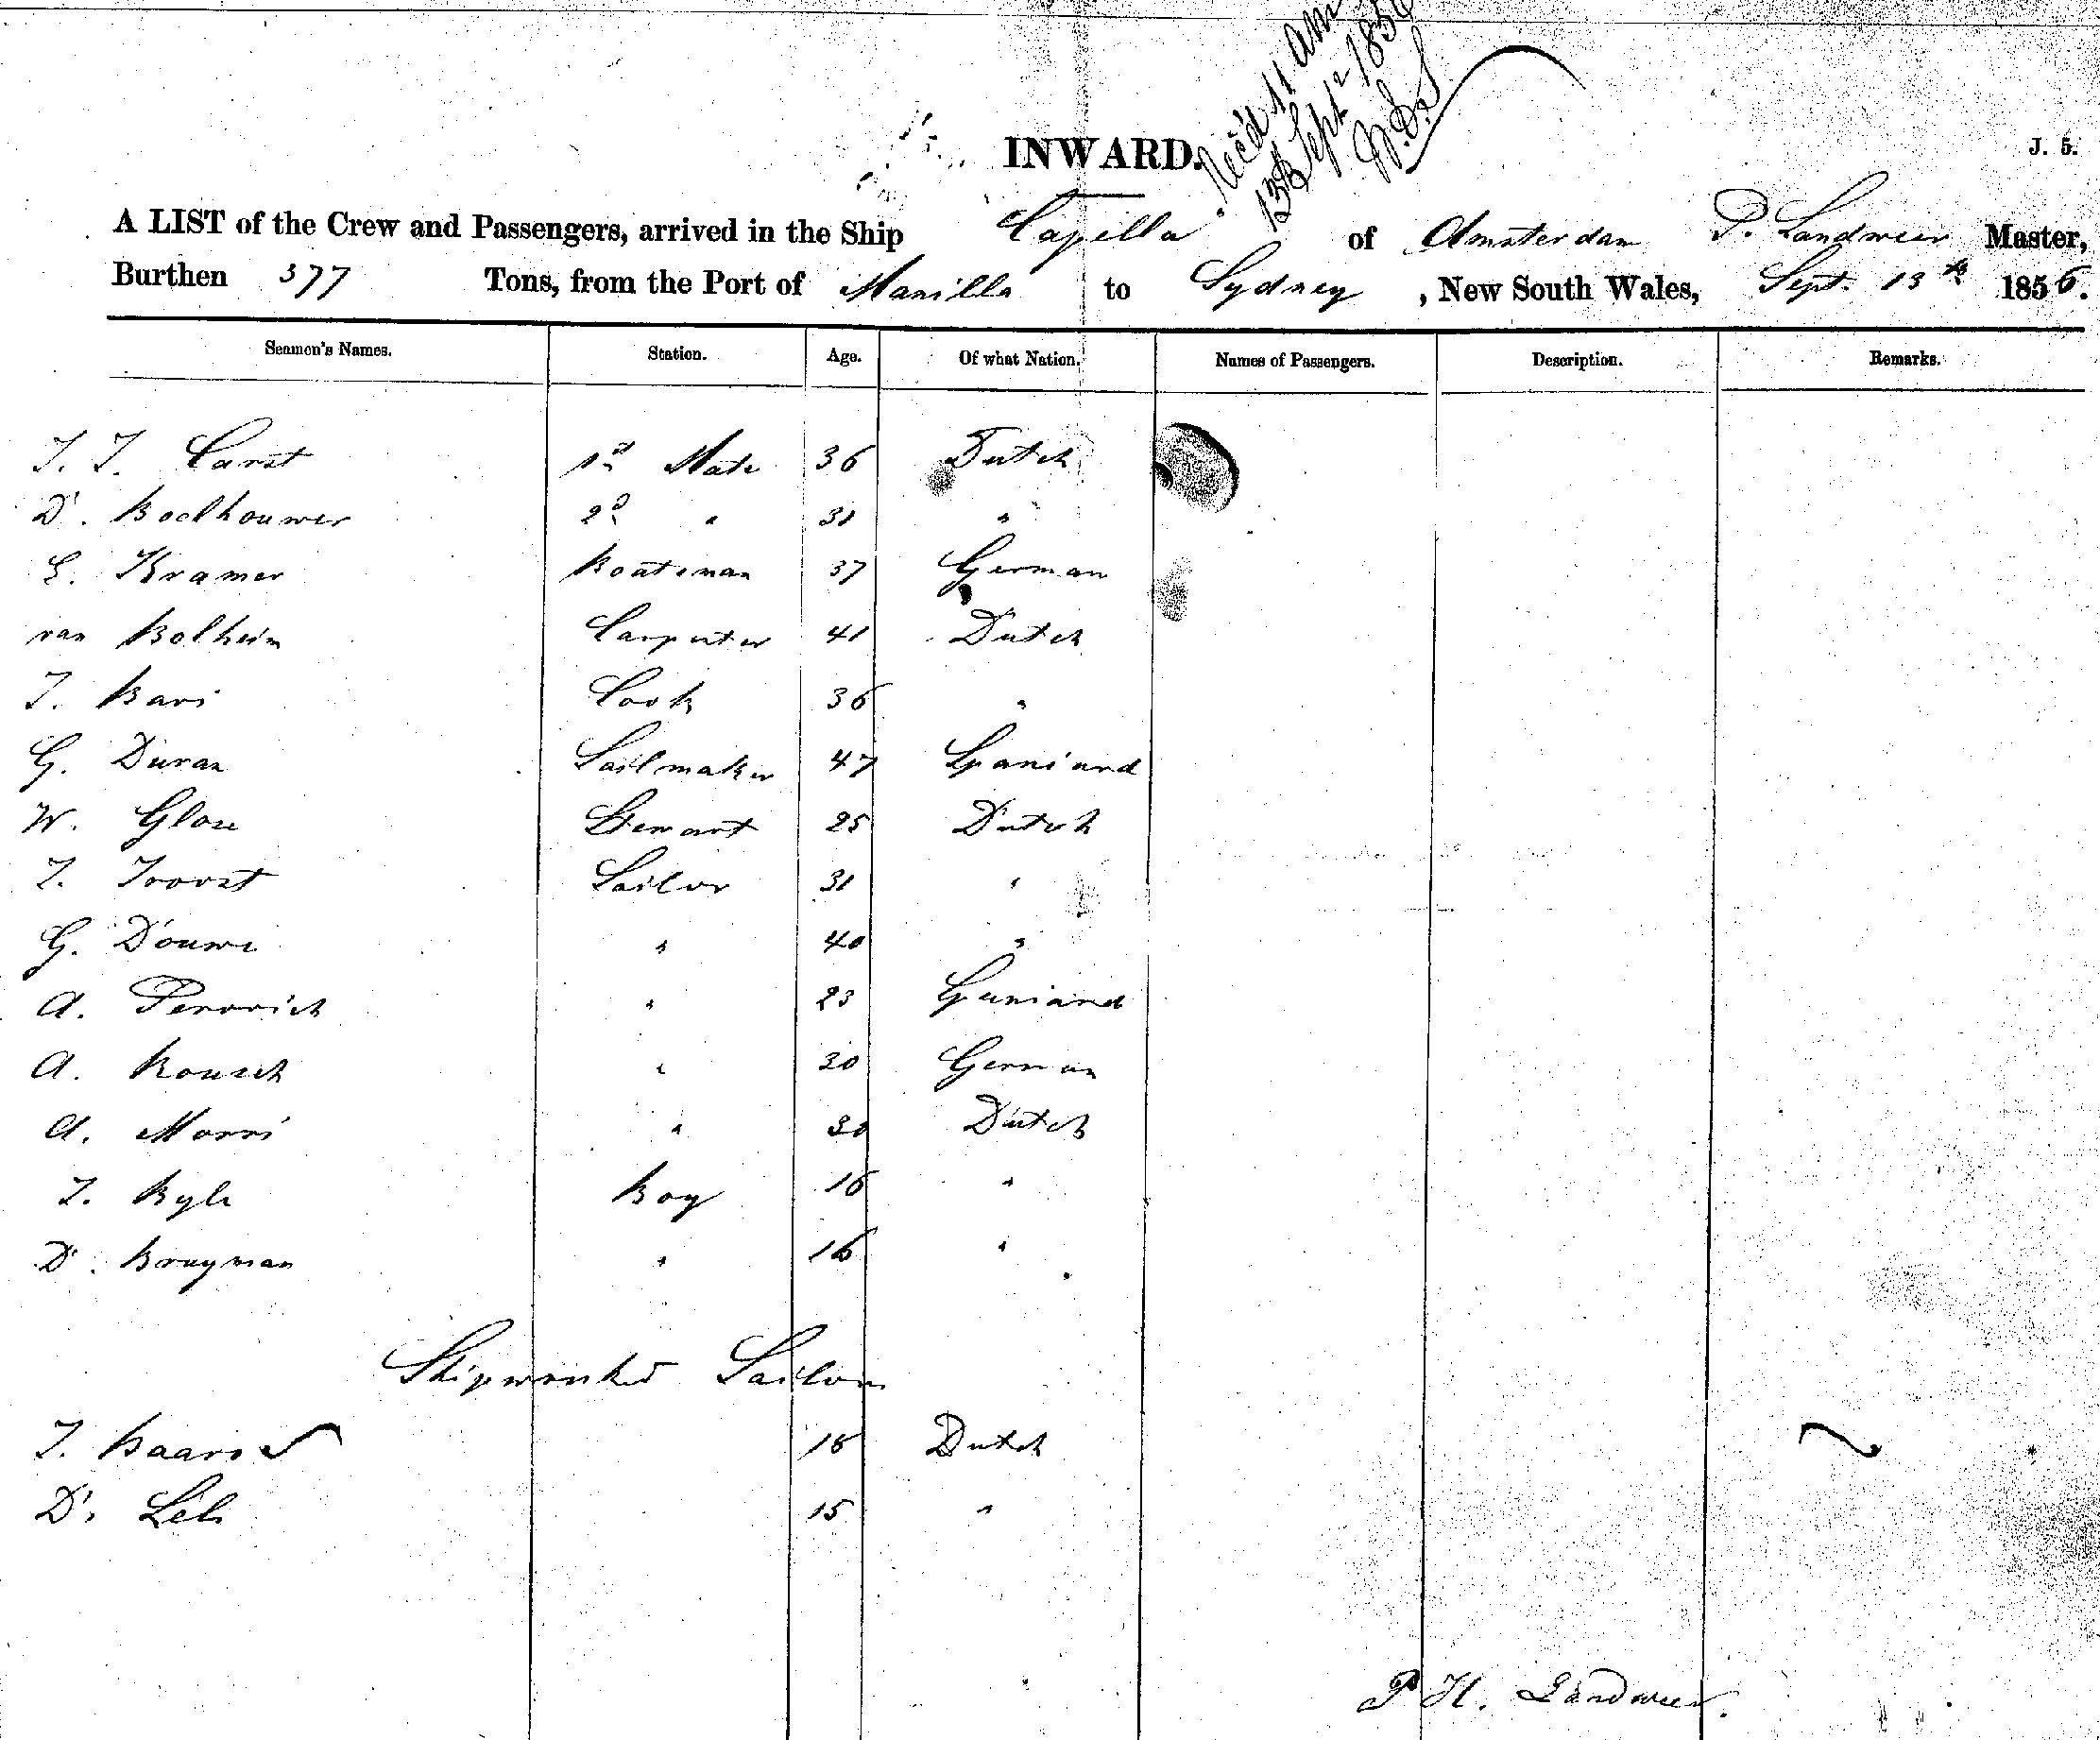 Rec'd 11 am
13th Sept 1856
INWARD.
J. 5.
A LIST of the Crew and Passengers, arrived in the Ship Capella of Amsterdam P. Landweer Master,
Burthen 377 Tons, from the Port of Manilla to Sydney, New South Wales, Sept. 13th 1856.
Seamen's Names. Station. Age. Of what Nation. Names of Passengers. Description. Remarks.
J. J. Carst 1st Mate 36 Dutch
D. Boelhouwer 2d " 31 "
Kramer Boatsman 37 German
van Bolhein Carpenter 41 Dutch
J. Bari Cook 36 "
G. Duran Sailmaker 47 Spaniard
W. Glose Stewart 25 Dutch
J. Troost Sailor 31 "
G. Douwe " 40 "
A. Perovich " 23 Spaniard
A. Bousch " 30 German
A. Morri " 30 Dutch
J. Byle Boy 16 "
D. Bruyman " 16 "
Shipwrecked Sailors
J. Baars 16 Dutch
D. Lels 15 "
P H. Landweer.